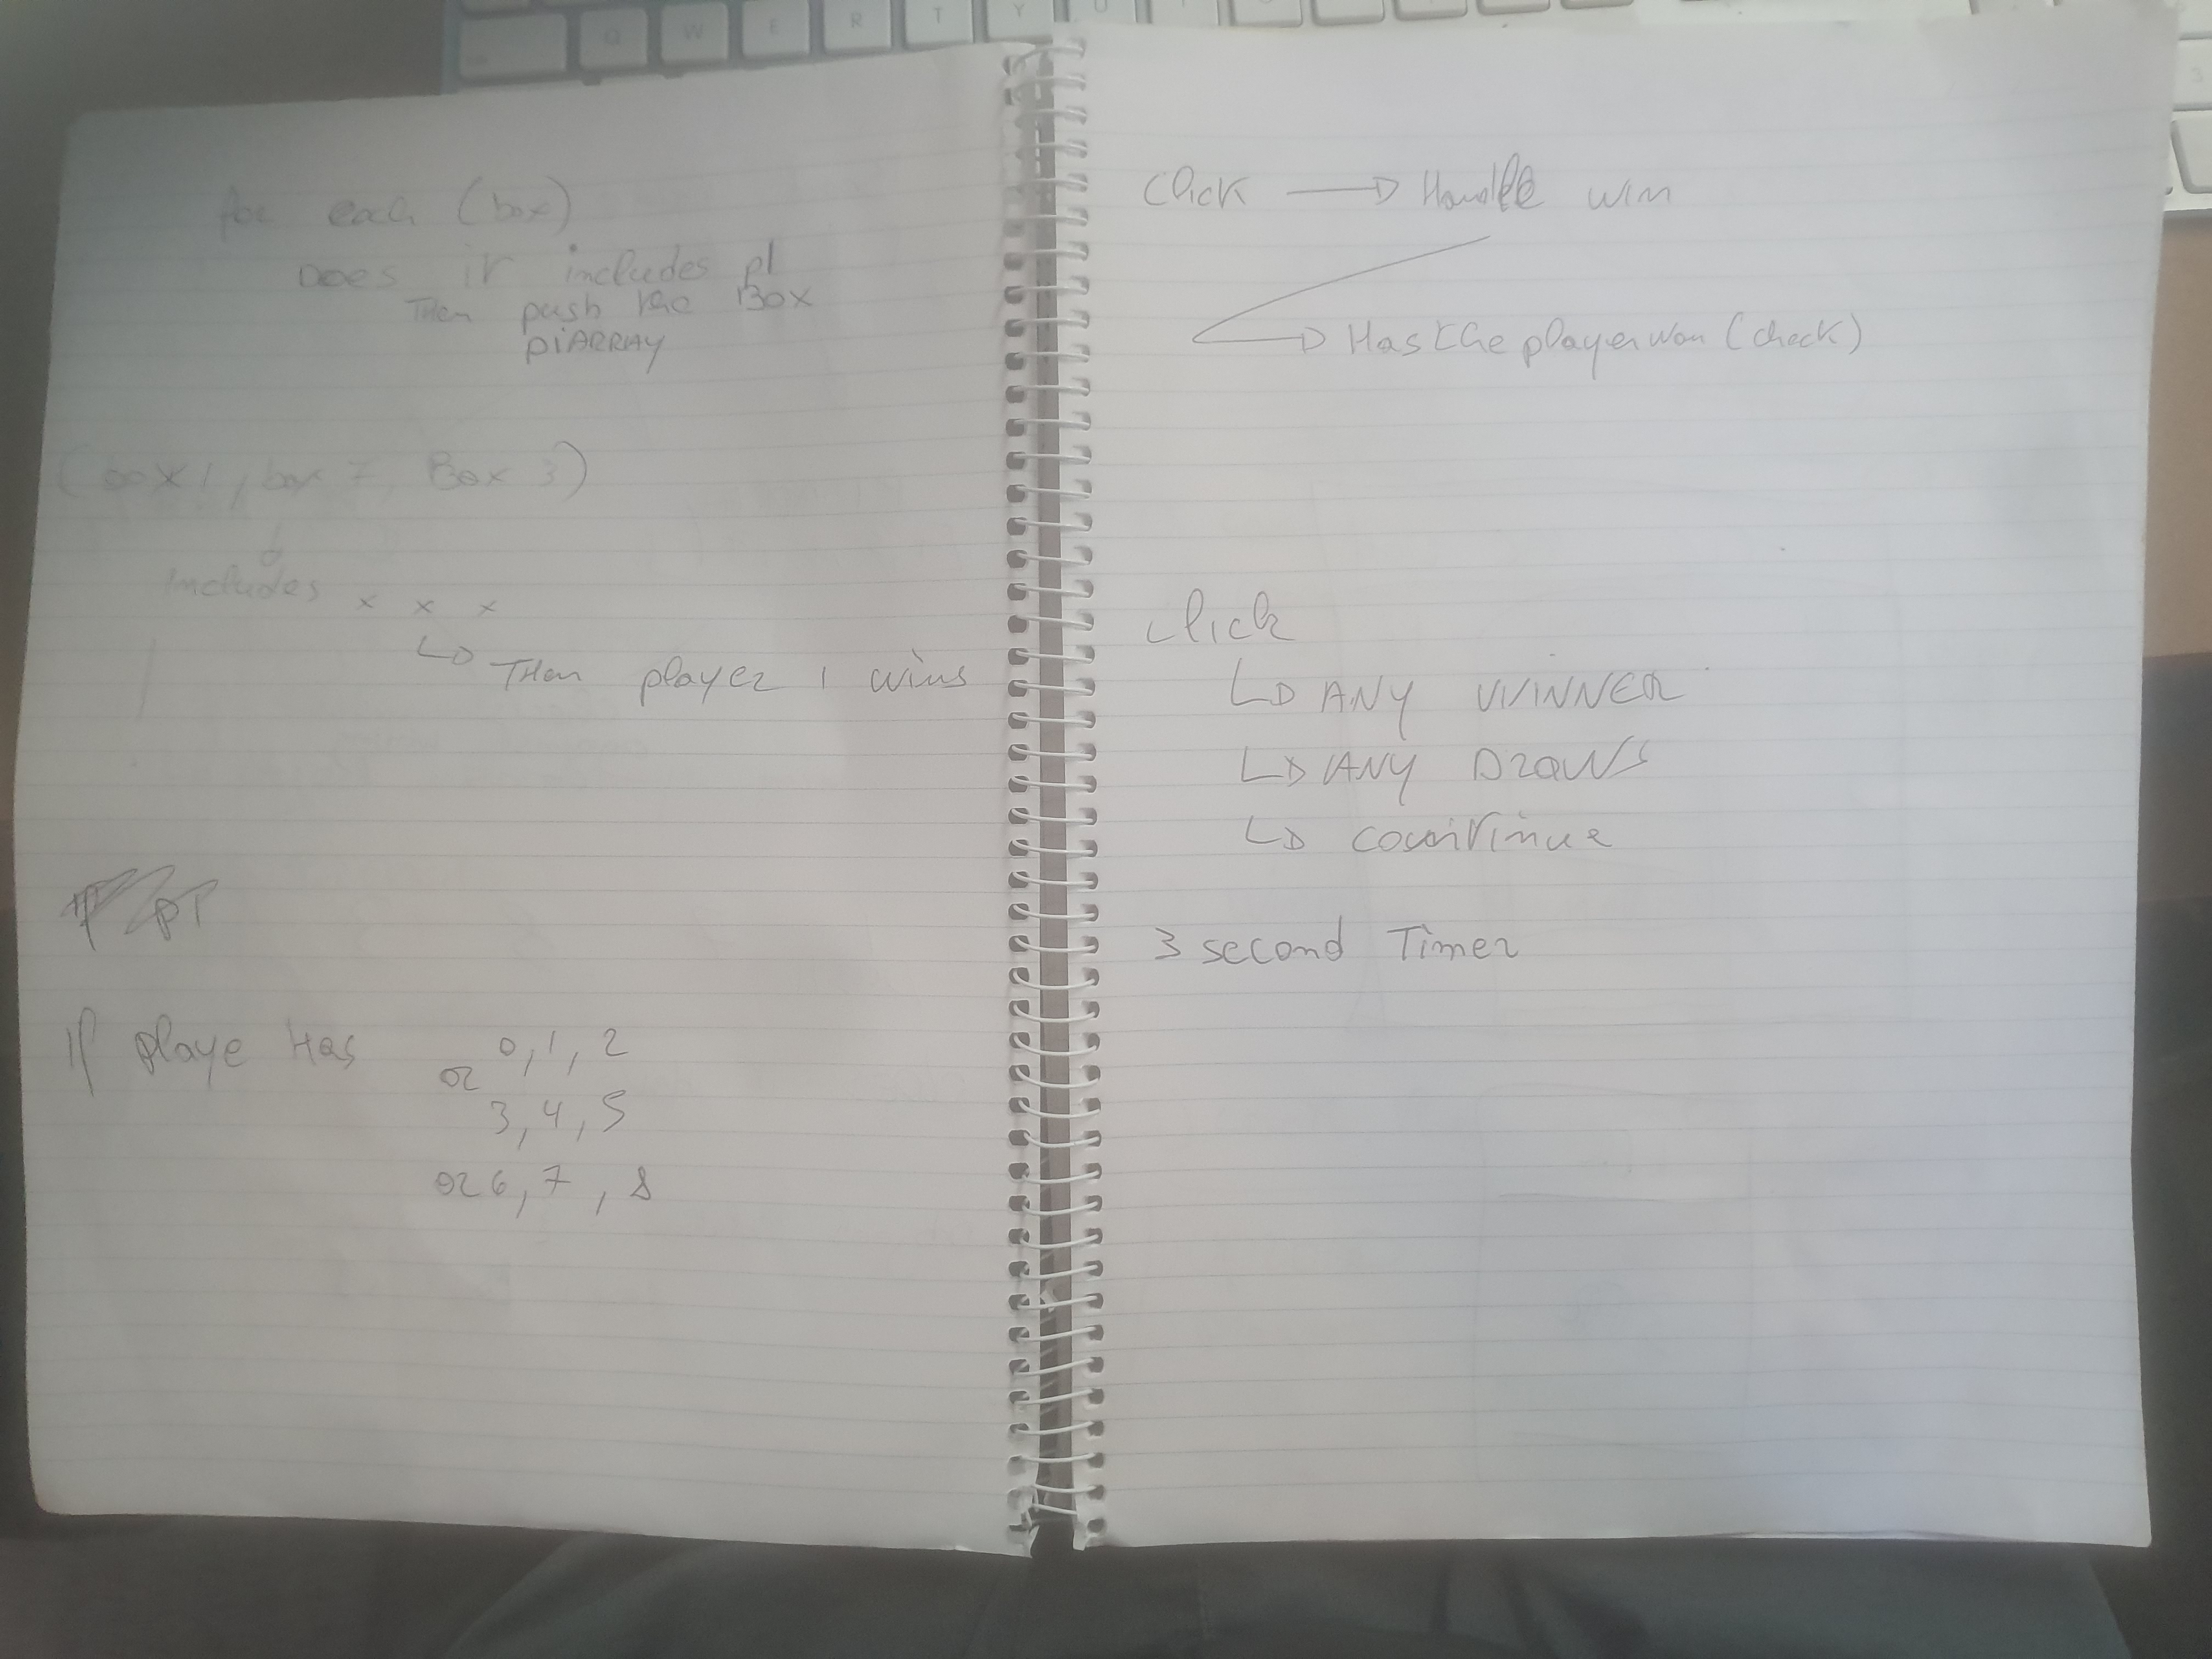 for each (box)
Does it includes p1
Then push the Box
p1ARRAY
(box 1, box 7, Box 3)
includes x x x
↳ Then player 1 wins
If playe Has
0, 1, 2
or 3, 4, 5
or 6, 7, 8
Click → Handle win
→ Has the player won (check)
Click
↳ ANY WINNER
↳ ANY Draws
↳ Continue
3 second Timer
Q
W
E
R
T
Y
U